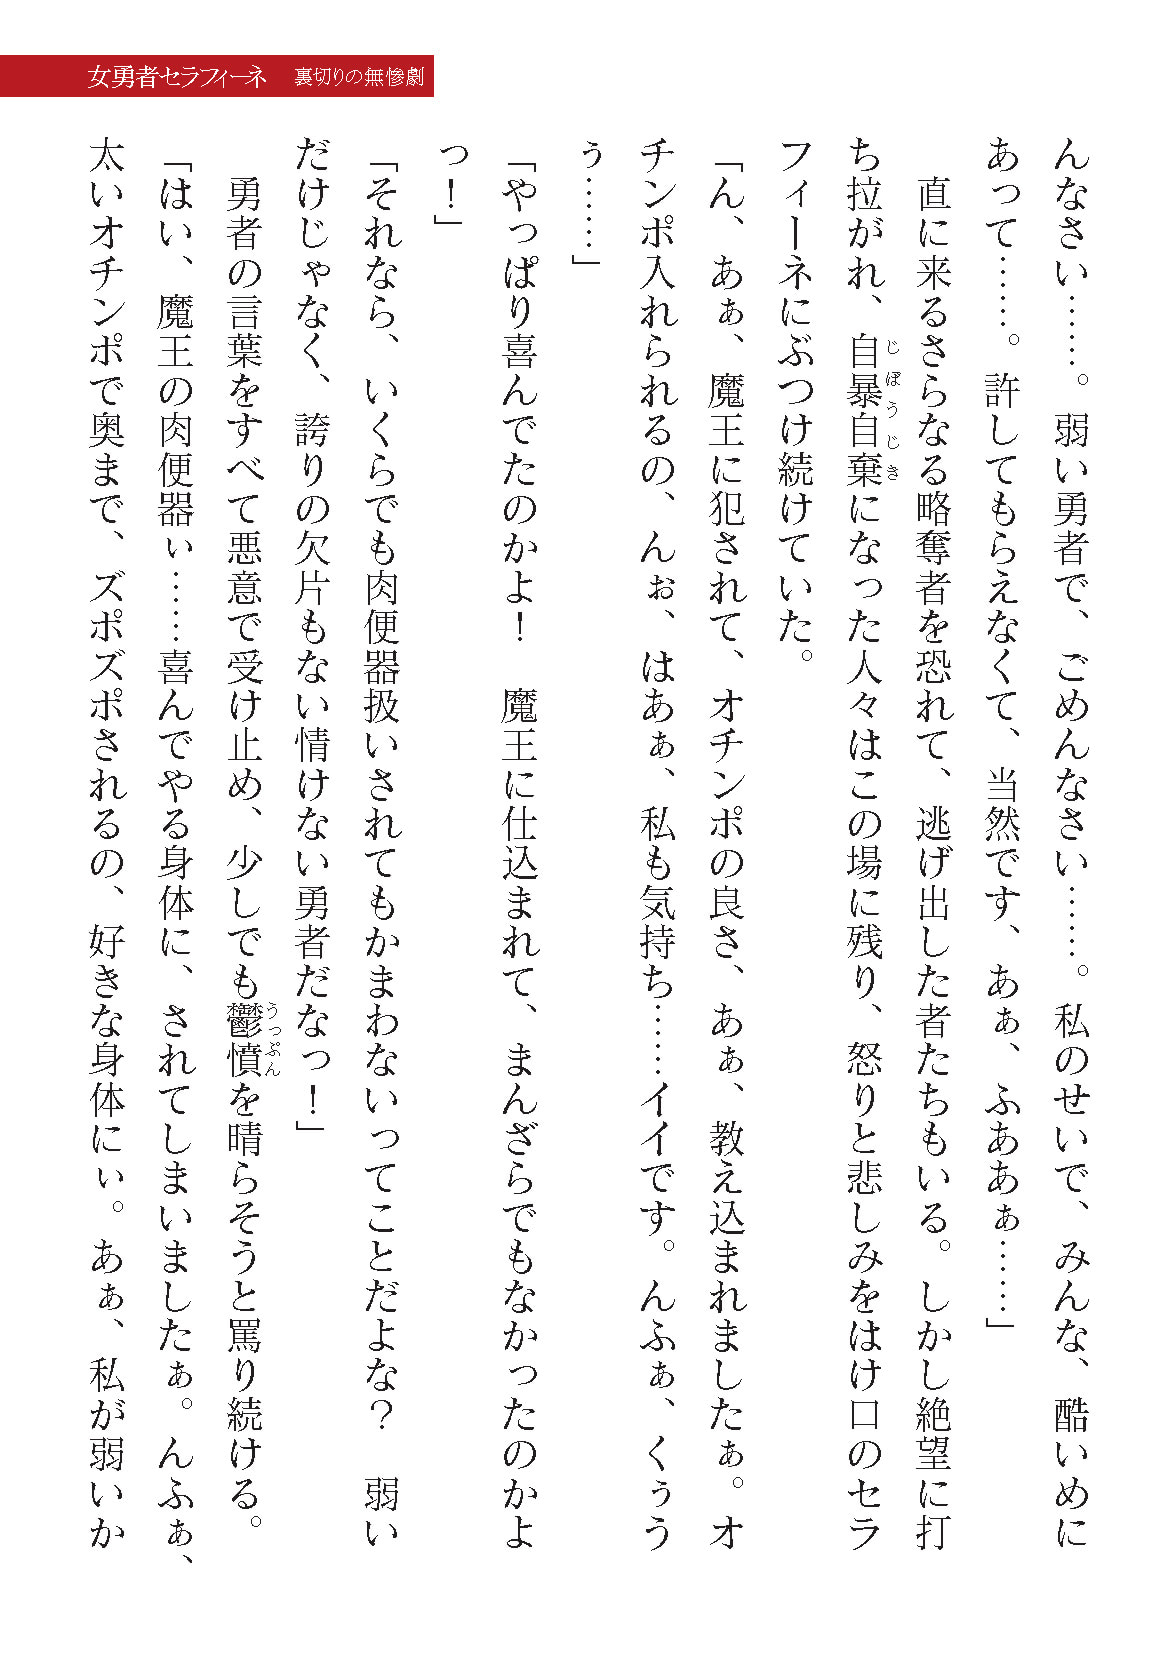 女勇者セラフィーネ　裏切りの無惨劇
んなさい……。弱い勇者で、ごめんなさい……。私のせいで、みんな、酷いめに
あって……。許してもらえなくて、当然です、あぁ、ふああぁ……」
　直に来るさらなる略奪者を恐れて、逃げ出した者たちもいる。しかし絶望に打
ち拉がれ、自暴自棄になった人々はこの場に残り、怒りと悲しみをはけ口のセラ
じぼうじき
フィーネにぶつけ続けていた。
「ん、あぁ、魔王に犯されて、オチンポの良さ、あぁ、教え込まれましたぁ。オ
チンポ入れられるの、んぉ、はあぁ、私も気持ち……イイです。んふぁ、くぅう
ぅ……」
「やっぱり喜んでたのかよ！　魔王に仕込まれて、まんざらでもなかったのかよ
っ！」
「それなら、いくらでも肉便器扱いされてもかまわないってことだよな？　弱い
だけじゃなく、誇りの欠片もない情けない勇者だなっ！」
　勇者の言葉をすべて悪意で受け止め、少しでも鬱憤を晴らそうと罵り続ける。
うっぷん
「はい、魔王の肉便器ぃ……喜んでやる身体に、されてしまいましたぁ。んふぁ、
太いオチンポで奥まで、ズポズポされるの、好きな身体にぃ。あぁ、私が弱いか